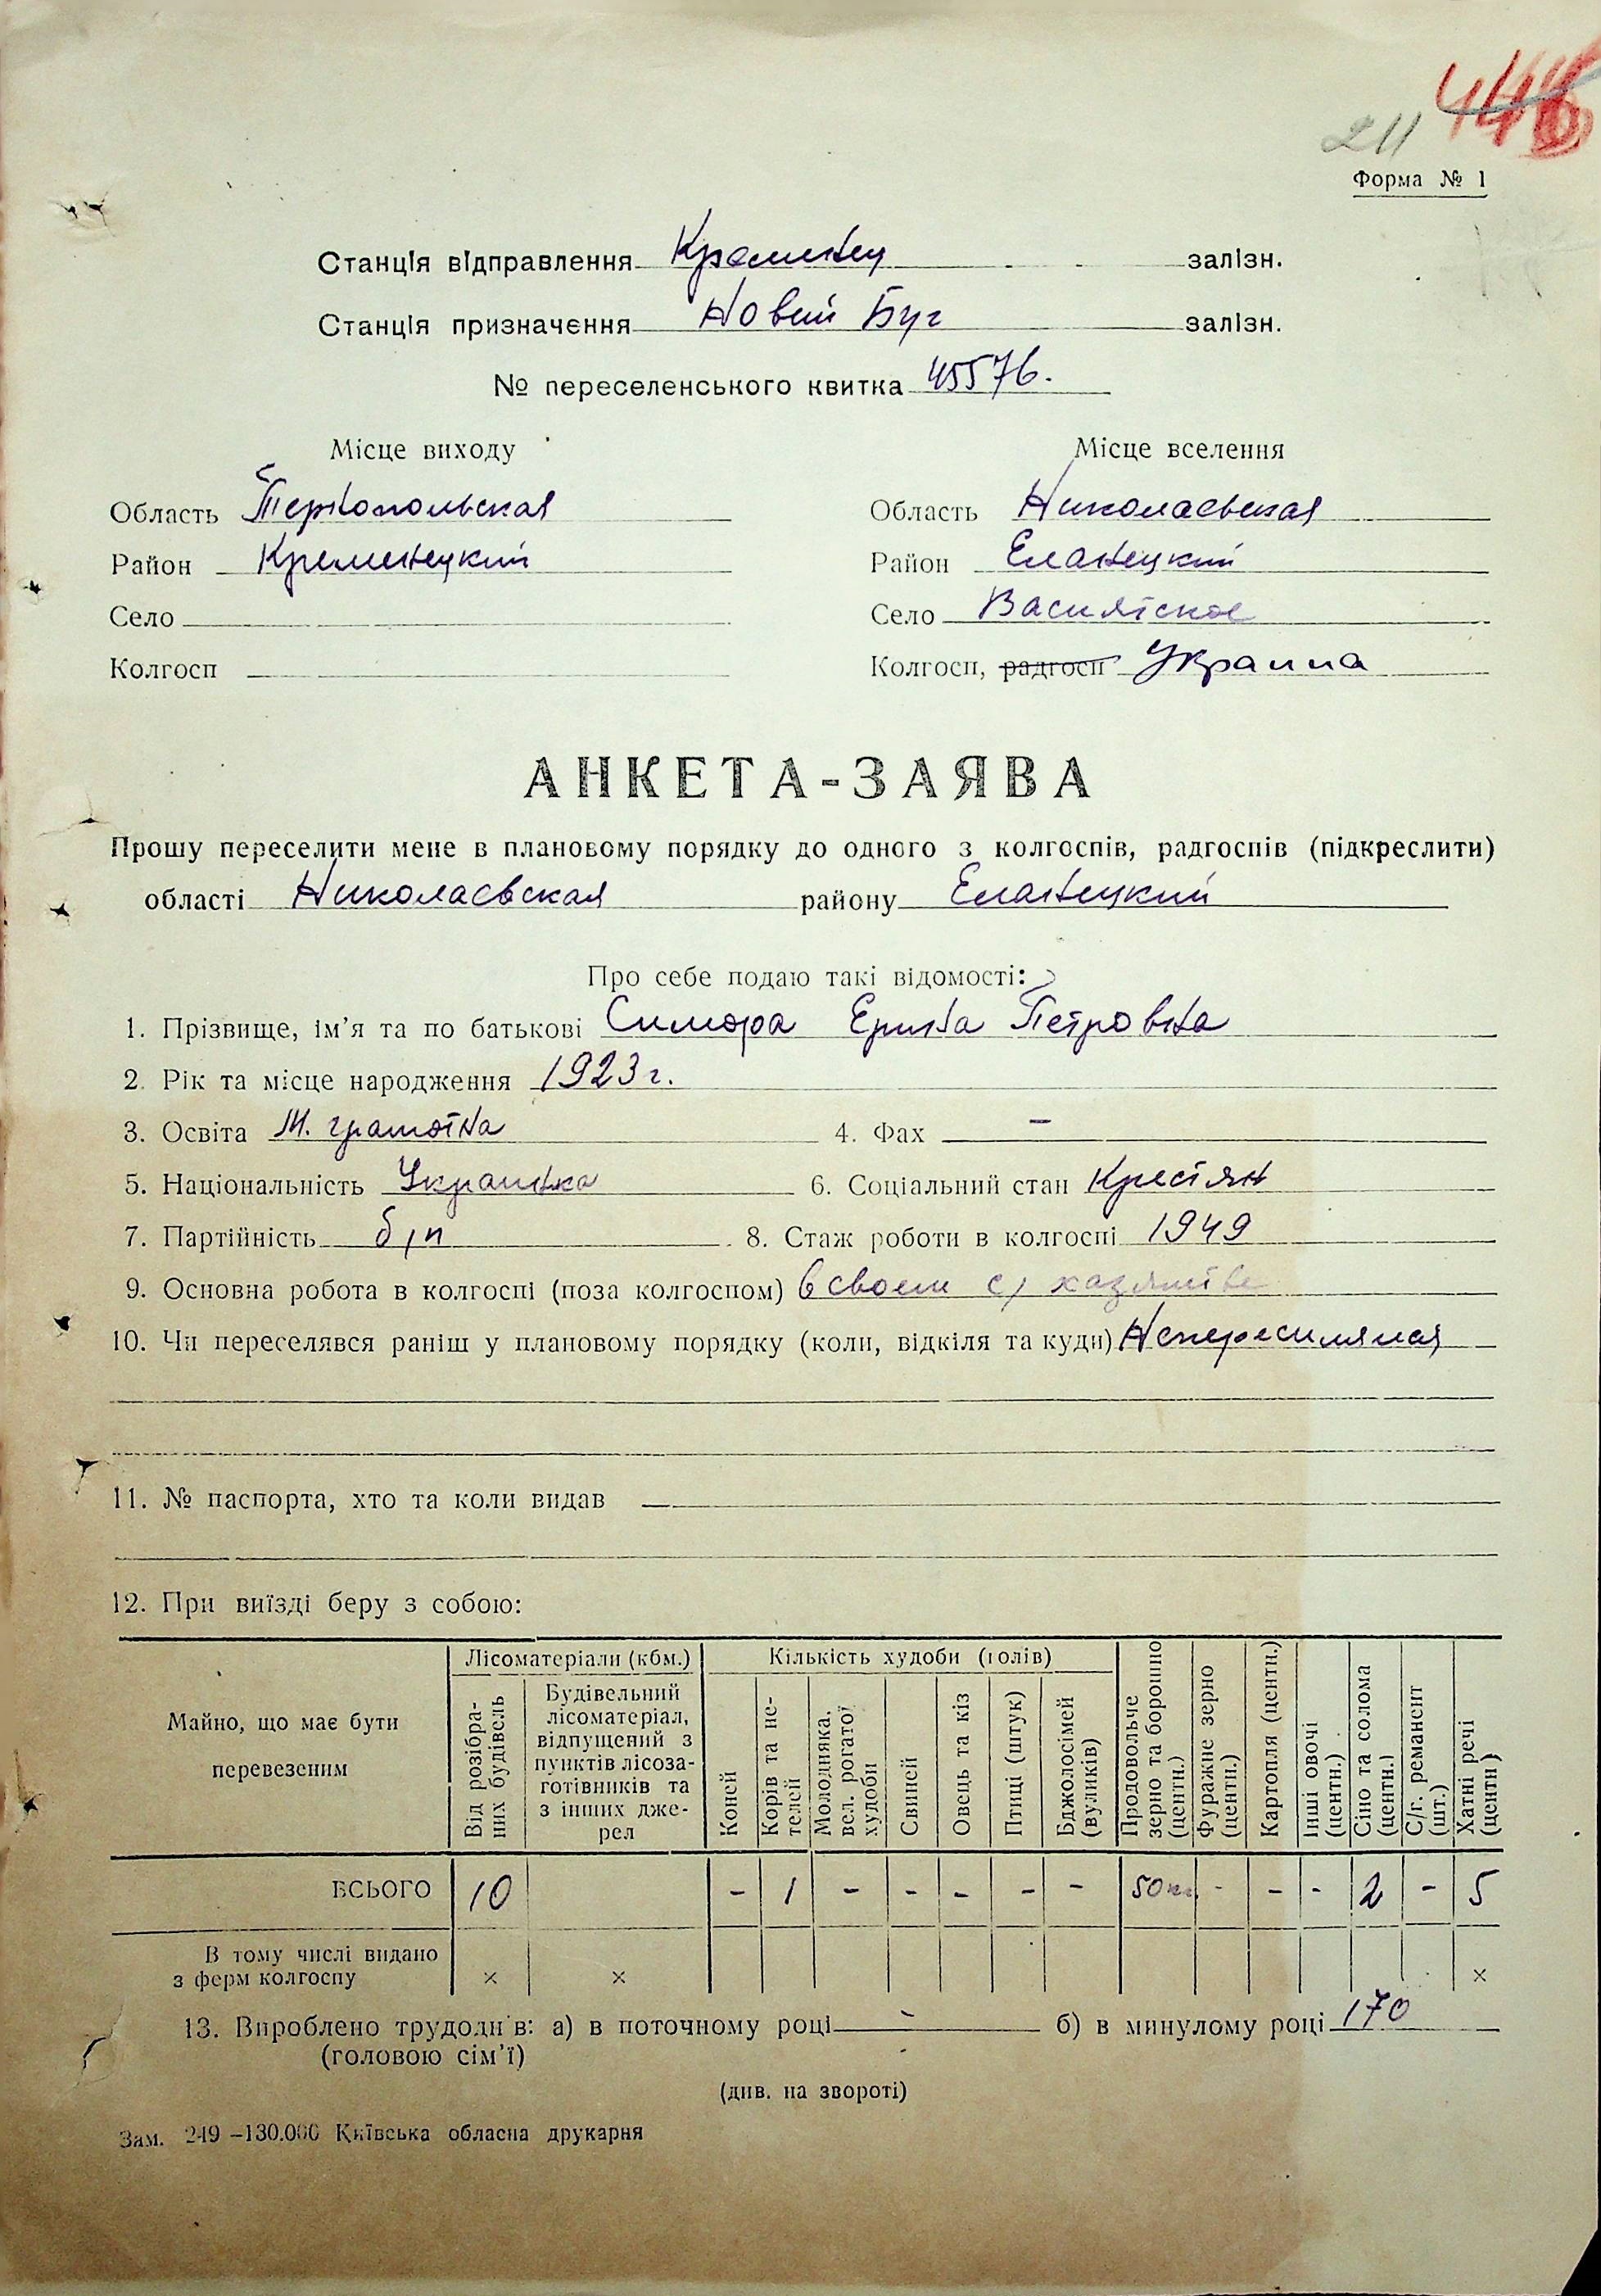 446
211
Форма № 1
Станція відправлення Кременец залізн.
Станція призначення Новый Буг залізн.
№ переселенського квитка 45576.
Місце виходу Місце вселення
Область Тернопольская Область Николаевская
Район Кременецкий Район Еланецкий
Село Село
Колгосп Колгосп, радгосп Украина
АНКЕТА-ЗАЯВА
Прошу переселити мене в плановому порядку до одного з колгоспів, радгоспів (підкреслити)
області Николаевская району Еланецкий
Про себе подаю такі відомості:
1. Прізвище, ім'я та по батькові Симора Ерина Петровна
2. Рік та місце народження 1923 г.
3. Освіта М. грамотна 4. Фах —
5. Національність Украинка 6. Соціальний стан Крестян
7. Партійність б/п 8. Стаж роботи в колгоспі 1949
9. Основна робота в колгоспі (поза колгоспом) в своем с/хазяйстве
10. Чи переселявся раніш у плановому порядку (коли, відкіля та куди)
11. № паспорта, хто та коли видав
12. При виїзді беру з собою:
Майно, що має бути перевезеним
Лісоматеріали (кбм.) Кількість худоби (голів)
Від розібраних будівель
Будівельний лісоматеріал, відпущений з пунктів лісозаготівників та з інших джерел
Коней
Корів та нетелей
Молодняка. вел. рогатої худоби
Свиней
Овець та кіз
Птиці (штук)
Бджолосімей (вуликів)
Продовольче зерно та борошно (центн.)
Фуражне зерно (центн.)
Картопля (центн.)
Інші овочі (центн.)
Сіно та солома (центн.)
С/г. реманент (шт.)
Хатні речі (центн)
ВСЬОГО 10 - 1 - - - - - 50 кг - - - 2 - 5
В тому числі видано
з ферм колгоспу × × ×
13. Вироблено трудоднів: а) в поточному році - б) в минулому році 170
(головою сім'ї)
(див. на звороті)
Зам. 249 –130.000 Київська обласна друкарня